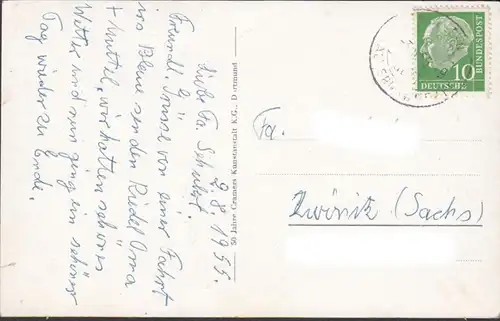 2.8.1955.
Liebe Fa. Schubert.
Freundl. Grüsse von einer Fahrt
ins Blaue senden Riedel Oma
+ Mutti, wir hatten schönes
Wetter und nun ging ein schöner
Tag wieder zu Ende.
50 Jahre Cramers Kunstanstalt K.G., Dortmund
DEUTSCHE
BUNDESPOST
10
Fa.
Zwönitz (Sachs)